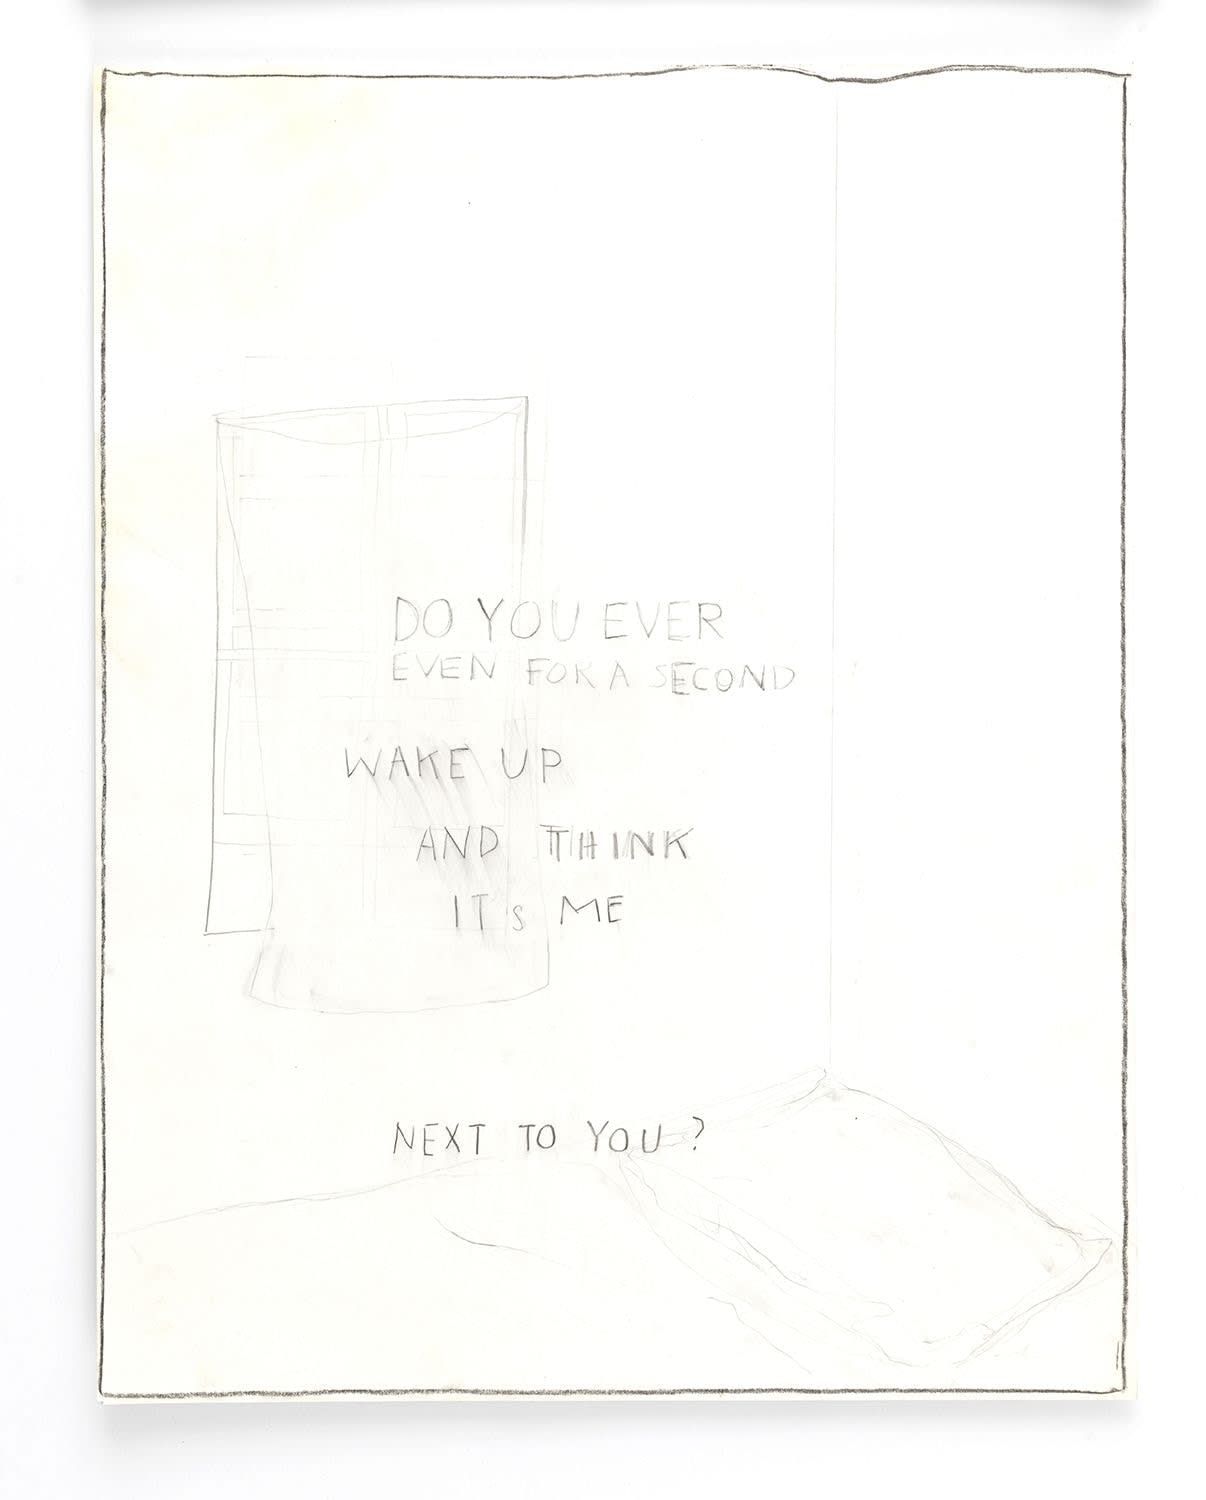 DO YOU EVER
EVEN FOR A SECOND
WAKE UP
AND THINK
ITS ME
NEXT TO YOU?